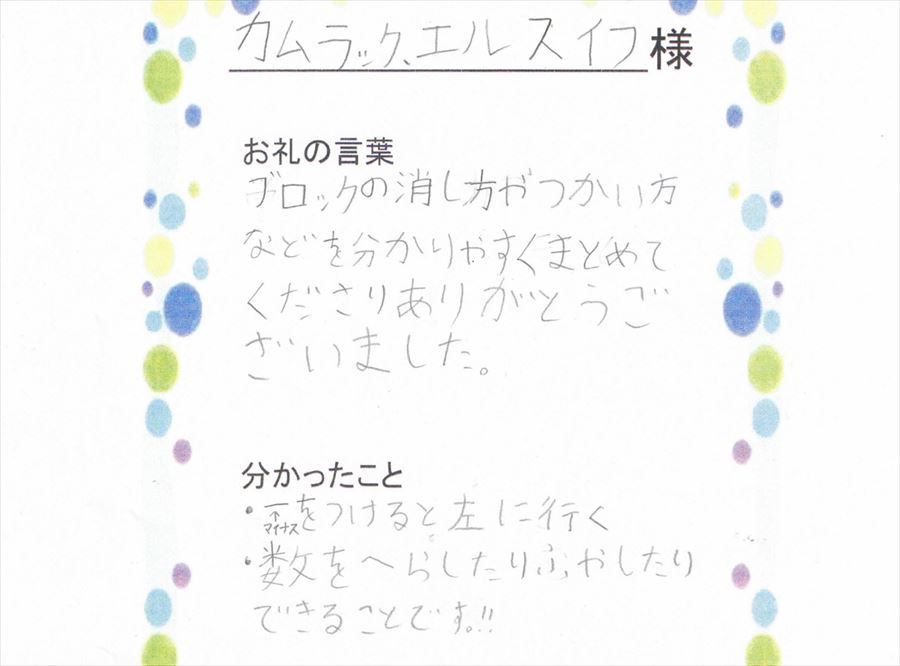 カムラック、エルスイフ様
お礼の言葉
ブロックの消し方やつかい方
などを分かりやすくまとめて
くださりありがとうご
ざいました。
分かったこと
・−をつけると左に行く
↑
マイナス
・数をへらしたりふやしたり
できることです。!!